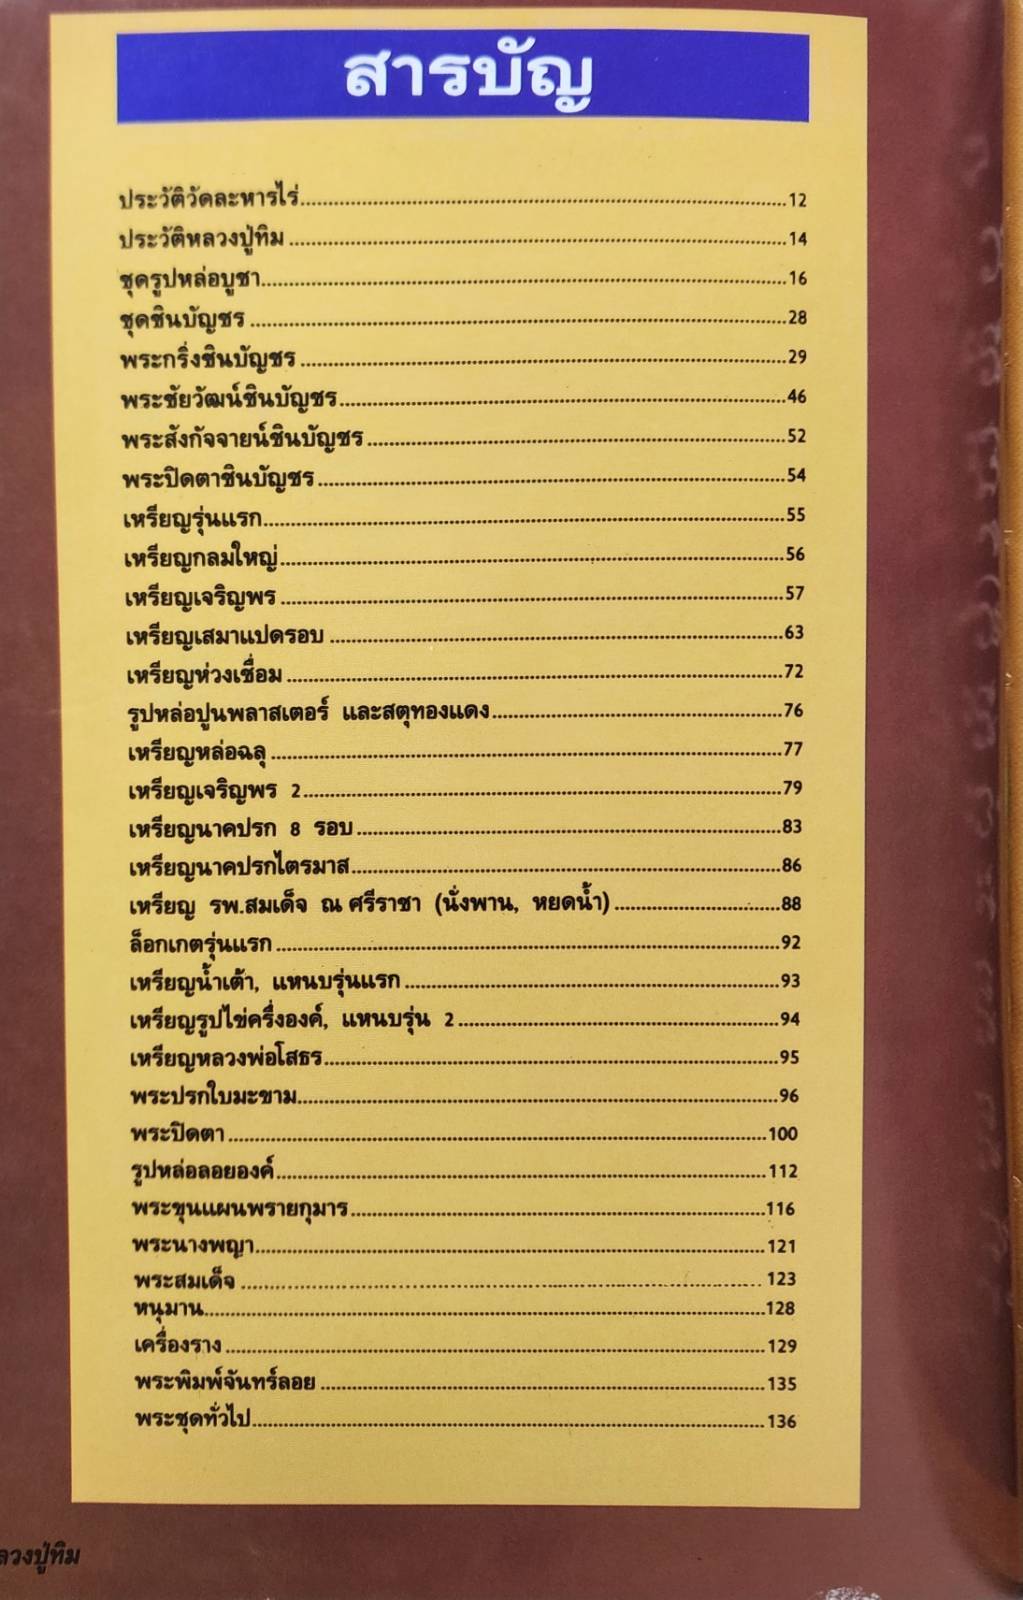 สารบัญ
ประวัติวัดละหารไร่............12
ประวัติหลวงปู่ทิม............14
ชุดรูปหล่อบูชา............16
ชุดชินบัญชร............28
พระกริ่งชินบัญชร............29
พระชัยวัฒน์ชินบัญชร............46
พระสังกัจจายน์ชินบัญชร............52
พระปิดตาชินบัญชร............54
เหรียญรุ่นแรก............55
เหรียญกลมใหญ่............56
เหรียญเจริญพร............57
เหรียญเสมาแปดรอบ............63
เหรียญห่วงเชื่อม............72
รูปหล่อปูนพลาสเตอร์ และสตุทองแดง............76
เหรียญหล่อฉลุ............77
เหรียญเจริญพร 2............79
เหรียญนาคปรก 8 รอบ............83
เหรียญนาคปรกไตรมาส............86
เหรียญ รพ.สมเด็จ ณ ศรีราชา (นั่งพาน, หยดน้ำ)............88
ล็อกเกตรุ่นแรก............92
เหรียญน้ำเต้า, แหนบรุ่นแรก............93
เหรียญรูปไข่ครึ่งองค์, แหนบรุ่น 2............94
เหรียญหลวงพ่อโสธร............95
พระปรกใบมะขาม............96
พระปิดตา............100
รูปหล่อลอยองค์............112
พระขุนแผนพรายกุมาร............116
พระนางพญา............121
พระสมเด็จ............123
หนุมาน............128
เครื่องราง............129
พระพิมพ์จันทร์ลอย............135
พระชุดทั่วไป............136
ลวงปู่ทิม